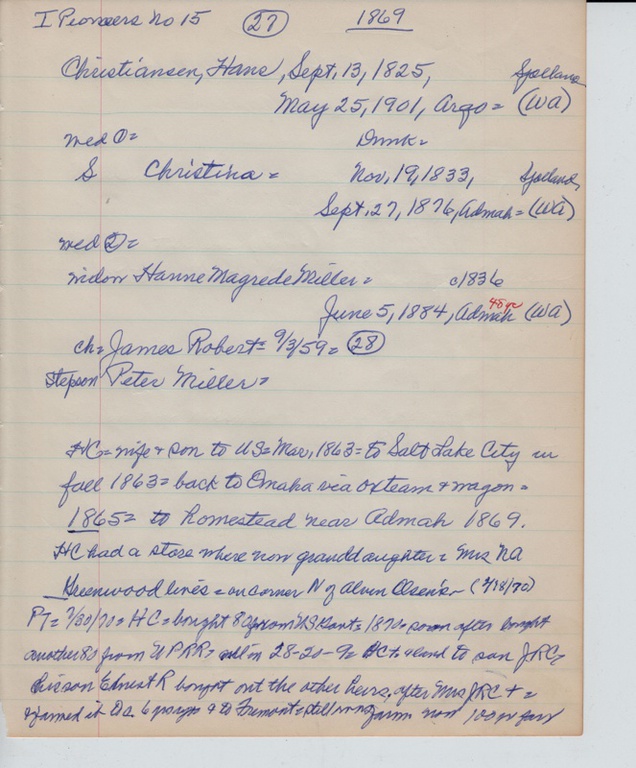 I Pioneers No 15 (27) 1869
Christiansen, Hans, Sept. 13, 1825, Sjælland
May 25, 1901, Argo = (WA)
med ① = Dmk =
S Christina = Nov, 19, 1833, Sjælland,
Sept. 27, 1876, Admah = (WA)
med ② =
widow Hanne Magrede Miller = c1836
48 yr
June 5, 1884, Admah (WA)
ch = James Robert = 9/3/59 = (28)
Stepson Peter Miller =
HC = wife + son to US = Mar, 1863 = to Salt Lake City in
fall 1863 = back to Omaha via oxteam + wagon =
1865 = to homestead near Admah 1869.
HC had a store where now granddaughter = Mrs NA
Greenwood lives = on corner N of Alvin Olsen's - (2/18/70)
PT = 7/30/70 = HC = bought 80 from US Govt = 1870 = soon after bought
another 80 from UPRR = all in 28-20-9 = HC + land to son JRC =
his son Ernest R bought out the other heirs, after Mrs JRC + =
+ farmed it 6 to Fremont = still farm now